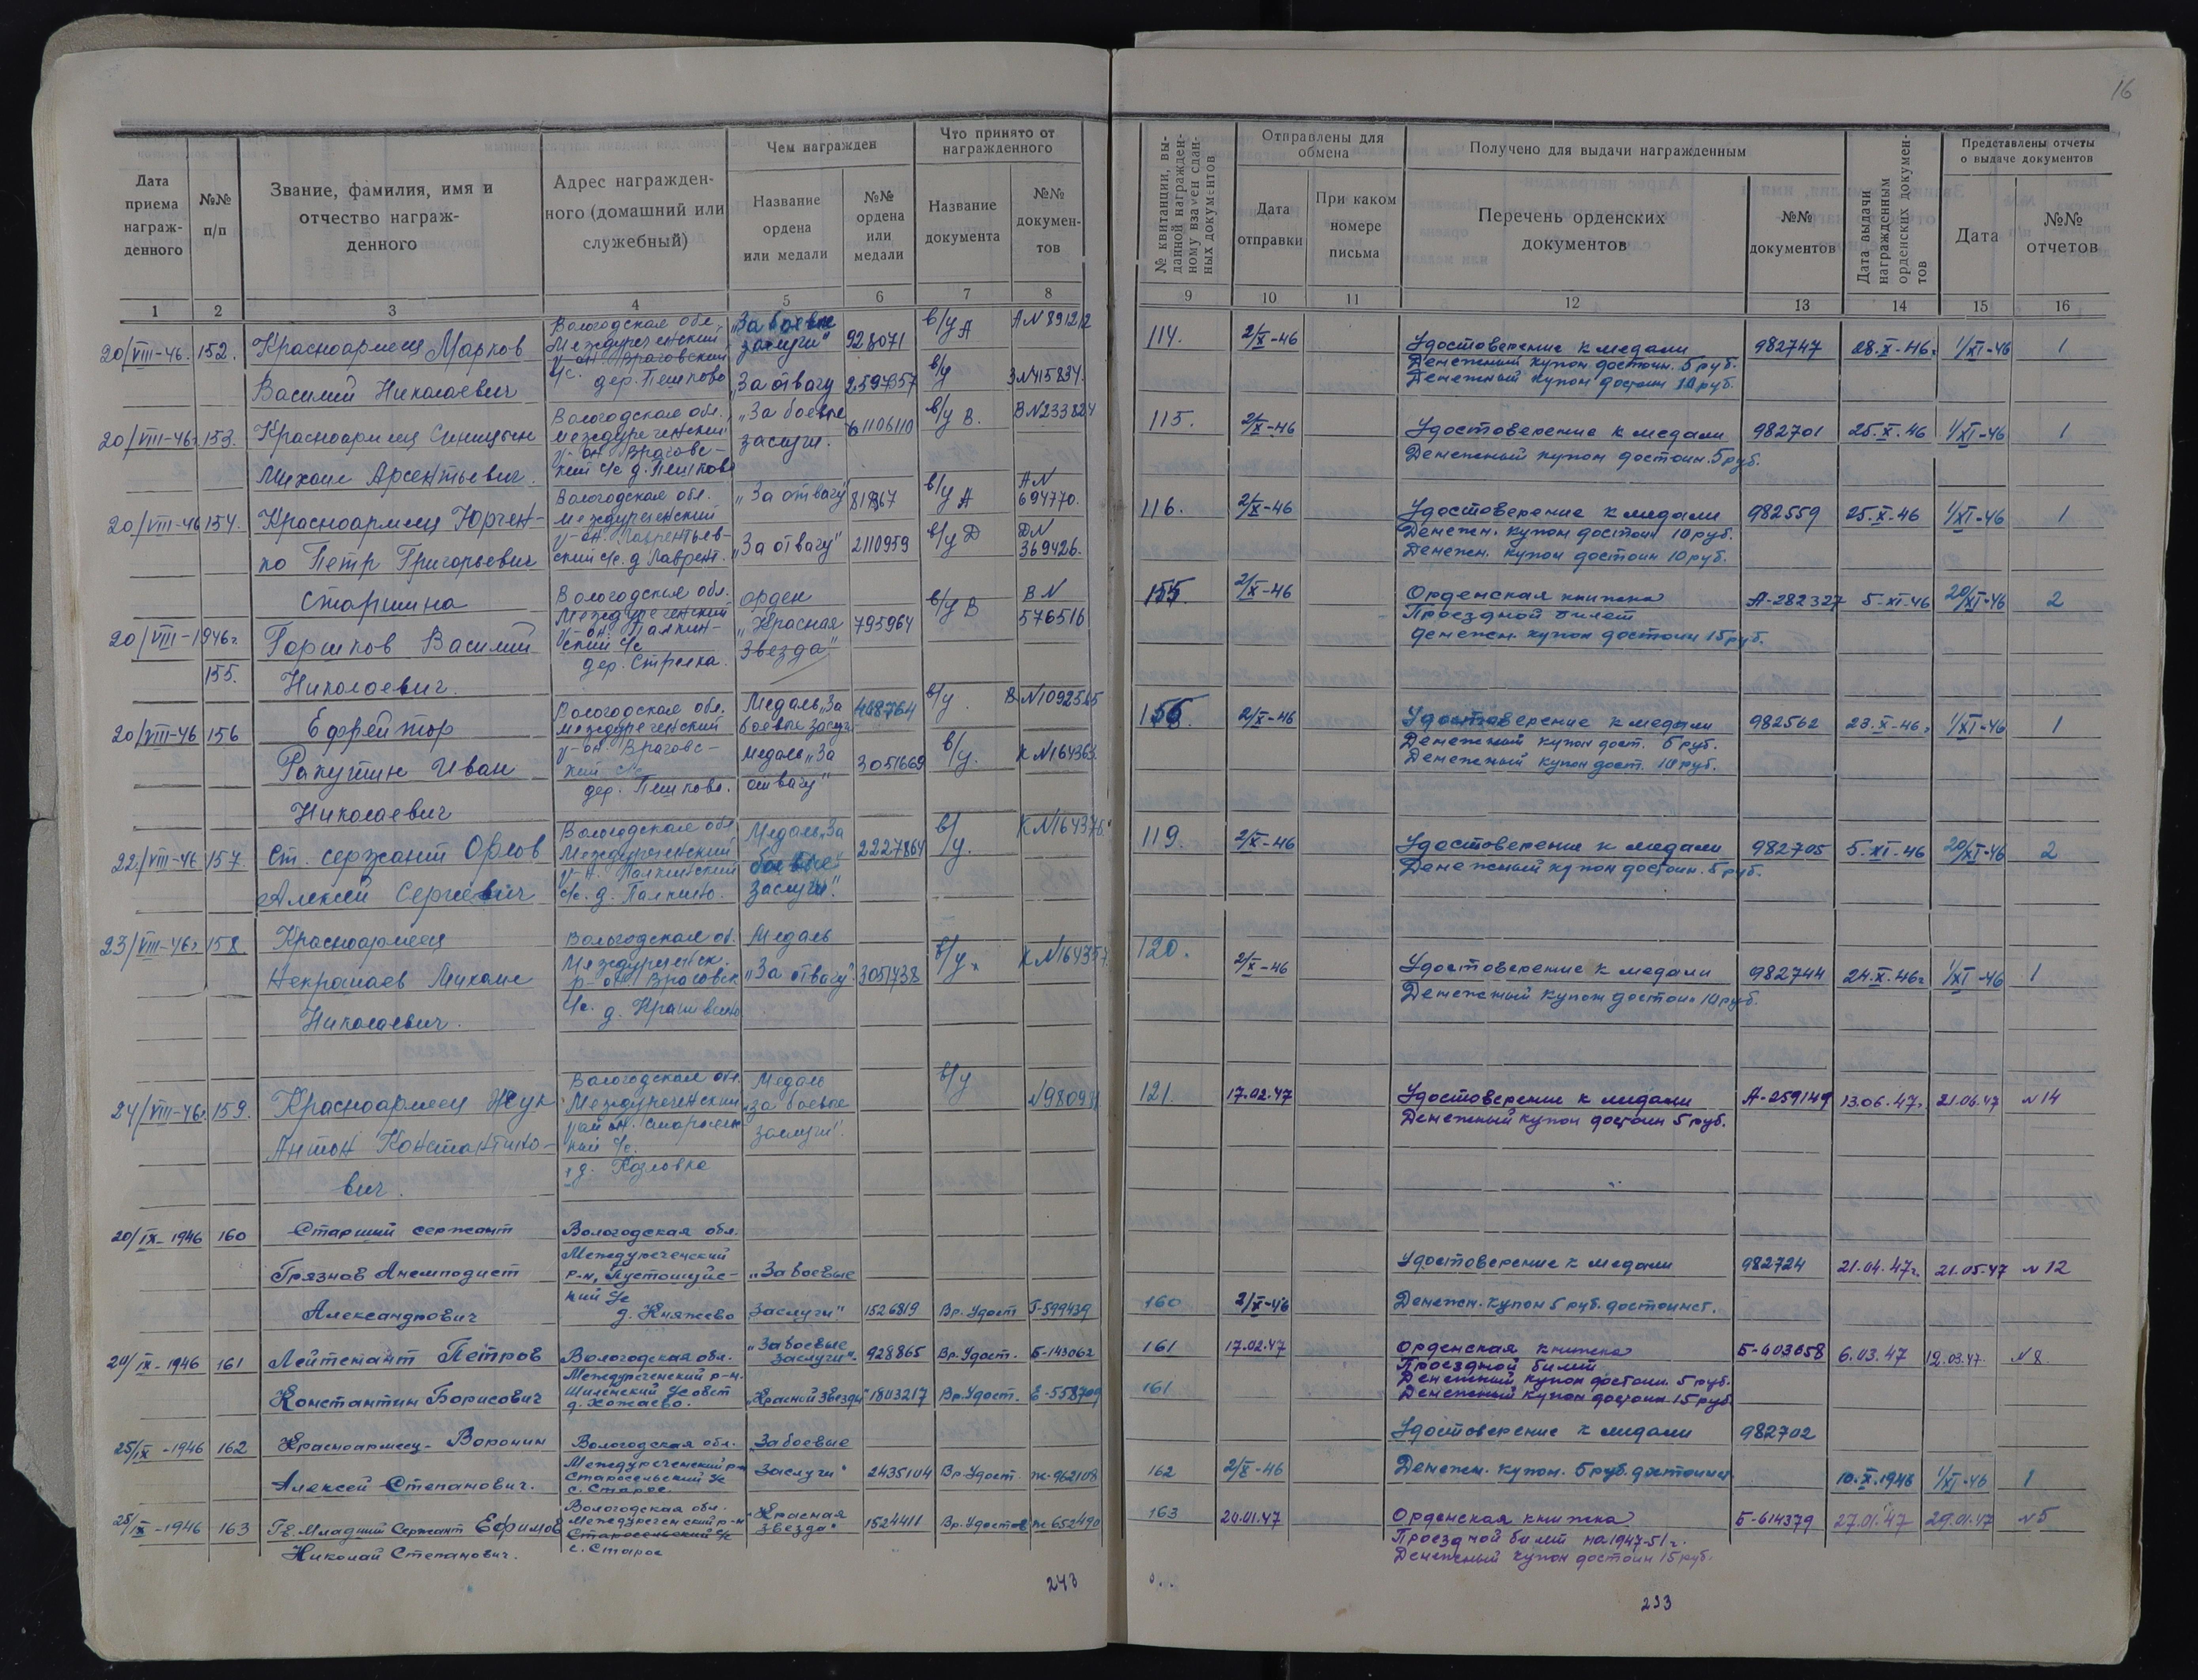 16
Дата приема награж-денного
№№ п/п
Звание, фамилия, имя и отчество награж-денного
Адрес награжден-ного (домашний или служебный)
Чем награжден
Название ордена или медали
№№ ордена или медали
Что принято от награжденного
Название документа
№№ докумен-тов
№ квитанции, вы-данной награжден-ному взамен сдан-ных документов
Отправлены для обмена
Дата отправки
При каком номере письма
Получено для выдачи награжденным
Перечень орденских документов
№№ документов
Дата выдачи награжденным орденских докумен-тов
Представлены отчеты о выдаче документов
Дата
№№ отчетов
1 2 3 4 5 6 7 8 9 10 11 12 13 14 15 16
20/VIII-46. 152. Красноармеец Марков
Василий Николаевич
Вологодская обл.
Междуреченский
р-он, Враговский
с/с. дер. Пешково
"За боевые
заслуги" 928071 в/у А А№ 891212
"За отвагу 2597357 в/у З№415834.
114. 2/X-46 Удостоверение к медали 982747 28.X-46г 1/XI-46 1
Денежный купон достоин. 5 руб.
Денежный купон достоин 10 руб.
20/VIII-46г. 153. Красноармеец Синицын
Михаил Арсентьевич.
Вологодская обл.
Междуреченский
р-он Враговс-
кий с/с д. Пешково
"За боевые
заслуги. 6110610 в/у В. В№233824
115. 2/X-46 Удостоверение к медали 982701 25.X.46 1/XI-46 1
Денежный купон достоин. 5 руб.
20/VIII-46 154. Красноармеец Юрчен-
ко Петр Григорьевич
Вологодская обл.
Междуреченский
р-он. Лаврентьев-
ский с/с. д Лаврент.
"За отвагу" 81867 в/у А А№ 694770.
"За отвагу" 2110959 в/у Д Д№ 369426.
116. 2/X-46 Удостоверение к медали 982559 25.X-46 1/XI-46 1
Денежн. купон достоин 10 руб.
Денежн. купон достоин 10 руб.
20/VIII-1946г. 155.
старшина
Горшков Василий
Николаевич.
Вологодская обл.
Междуреченский
р-он. Палкин-
ский с/с
дер. Стрелка.
орден
"Красная
Звезда" 795964 в/у В В№ 576516
155. 2/X-46 Орденская книжка А-282327 5-XI-46 20/XI-46 2
Проездной билет
денежн. купон достоин 15 руб.
20/VIII-46 156 Ефрейтор
Ракутин Иван
Николаевич
Вологодская обл.
Междуреченский
р-он. Враговс-
кий с/с
дер. Пешково.
Медаль "За
боевые заслуг. 468764 в/у. В№1092565
медаль "За
отвагу" 3051669 в/у. К№164363.
156. 2/X-46 Удостоверение к медали 982562 23.X-46г 1/XI-46 1
Денежный купон дост. 5 руб.
Денежный купон дост. 10 руб.
22/VIII-46 157. Ст. сержант Орлов
Алексей Сергеевич
Вологодская обл
Междуреченский
р-н. Палкинский
с/с. д. Палкино.
Медаль "За
боевые
заслуги". 2227864 в/у. К№164376.
119. 2/X-46 Удостоверение к медали 982705 5.XI.46 20/XI-46 2
Денежный купон достоин. 5 руб.
23/VIII-46г 158. Красноармеец
Некрасаев Михаил
Николаевич.
Вологодская об.
Междуреченск.
р-он. Враговск
с/с. д.
Медаль
"За отвагу" 3051738 в/у.
120. 2/X-46 Удостоверение к медали 982744 24.X.46г 1/XI-46 1
Денежный купон достоин 10 руб.
24/VIII-46г. 159. Красноармеец Жук
Антон Константино-
вич.
Вологодская обл.
Междуреченский
район.
кий с/с.
д. Козловка
Медаль
"за боевые
заслуги". в/у
121. 17.02.47 Удостоверение к медали А-259149 13.06.47г. 21.06.47 №14
Денежный купон достоин 5 руб.
20/IX-1946 160 Старший сержант
Грязнов Анемподист
Александрович
Вологодская обл.
Междуреченский
р-н, Пустошуйс-
кий с/с
д. Княжево
"За боевые
заслуги" 1526819 Вр. Удост Г-599439
160 2/X-46 Удостоверение к медали 982724 21.04.47г. 21.05.47 №12
Денежн. купон 5 руб. достоинст.
20/IX-1946 161 Лейтенант Петров
Константин Борисович
Вологодская обл.
Междуреченский р-н.
Шиленский с/совет
д. Хожаево.
"За боевые
заслуги". 928865 Вр. Удост. Б-143062
"Красной Звезды" 1803217 Вр. Удост. Е-558709
161 17.02.47 Орденская книжка Б-603658 6.03.47 12.03.47. №8
Проездной билет
161 Денежный купон достоин. 5 руб.
Денежный купон достоин 15 руб.
25/IX-1946 162 Красноармеец- Воронин
Алексей Степанович.
Вологодская обл.
Междуреченский р-н
Старосельский с/с
с. Старое
За боевые
заслуги" 2435104 Вр. Удост Ж-962108
162 2/X-46 Удостоверение к медали 982702
Денежн. купон. 5 руб. достоинст 10.X.1946 1/XI-46 1
25/IX-1946 163 Гв. Младший Сержант Ефимов
Николай Степанович.
Вологодская обл.
Междуреченский р-н
Старосельский с/с
с. Старое
"Красная
Звезда" 1524411 Вр. Удостов Ж-652490
163 20.01.47 Орденская книжка Б-614379 27.01.47 29.01.47 №5
Проездной билет на 1947-51г.
Денежный купон достоин 15 руб.
243
233